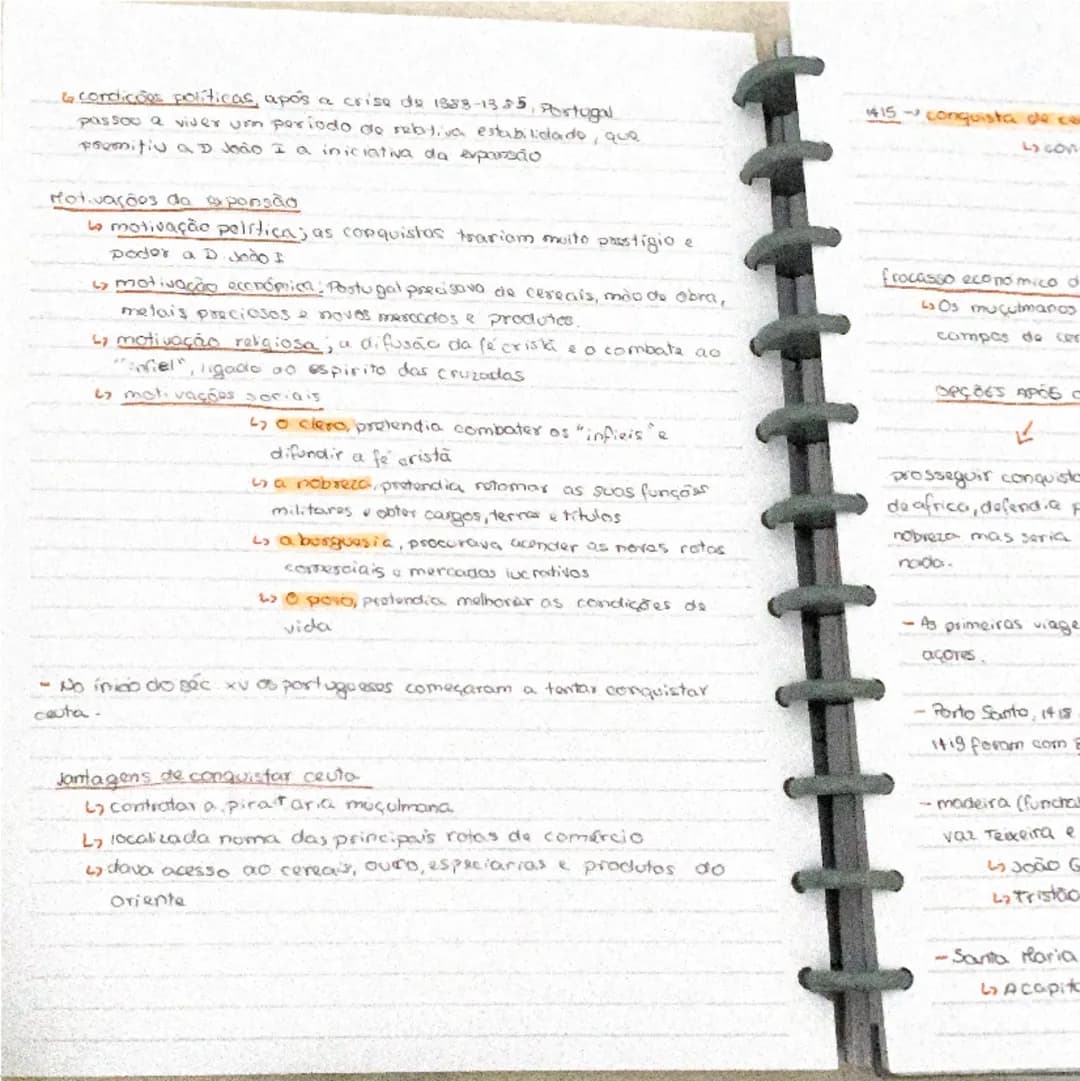 ↳ condições políticas, após a crise de 1383-1385, Portugal
passou a viver um período de relativa estabilidade, que
premitiu a D João I a iniciativa da expansão
Motivações da expansão
↳ motivação política; as conquistas trariam muito prestígio e
poder a D. João I
↳ motivação económica; Portugal precisava de cereais, mão de obra,
metais preciosos e novos mercados e produtos.
↳ motivação religiosa; a difusão da fé cristã e o combate ao
"infiel", ligado ao espirito das cruzadas
↳ motivações sociais
↳ o clero, pretendia combater os "infieis" e
difundir a fé cristã
↳ a nobreza, pretendia retomar as suas funções
militares e obter cargos, terras e títulos
↳ a burguesia, procurava acender as novas rotas
comerciais e mercados lucrativos
↳ O povo, pretendia melhorar as condições de
vida
- No início do séc XV os portugueses começaram a tentar conquistar
ceuta.
Vantagens de conquistar ceuta
↳ controlar a pirataria muçulmana
↳ localizada numa das principais rotas de comércio
↳ dava acesso ao cereais, ouro, especiarias e produtos do
Oriente
1415 → conquista de ce
↳ con
fracasso económico d
↳ Os muçulmanos
campos de cer
OPÇÕES APÓS C
↙
prosseguir conquista
de africa, defendia p
nobreza mas seria
nada.
- As primeiras viage
açores.
- Porto Santo, 1418
1419 foram com
- madeira (funchal
vaz Teixeira e
↳ João G
↳ Tristão
- Santa Maria
↳ A capit